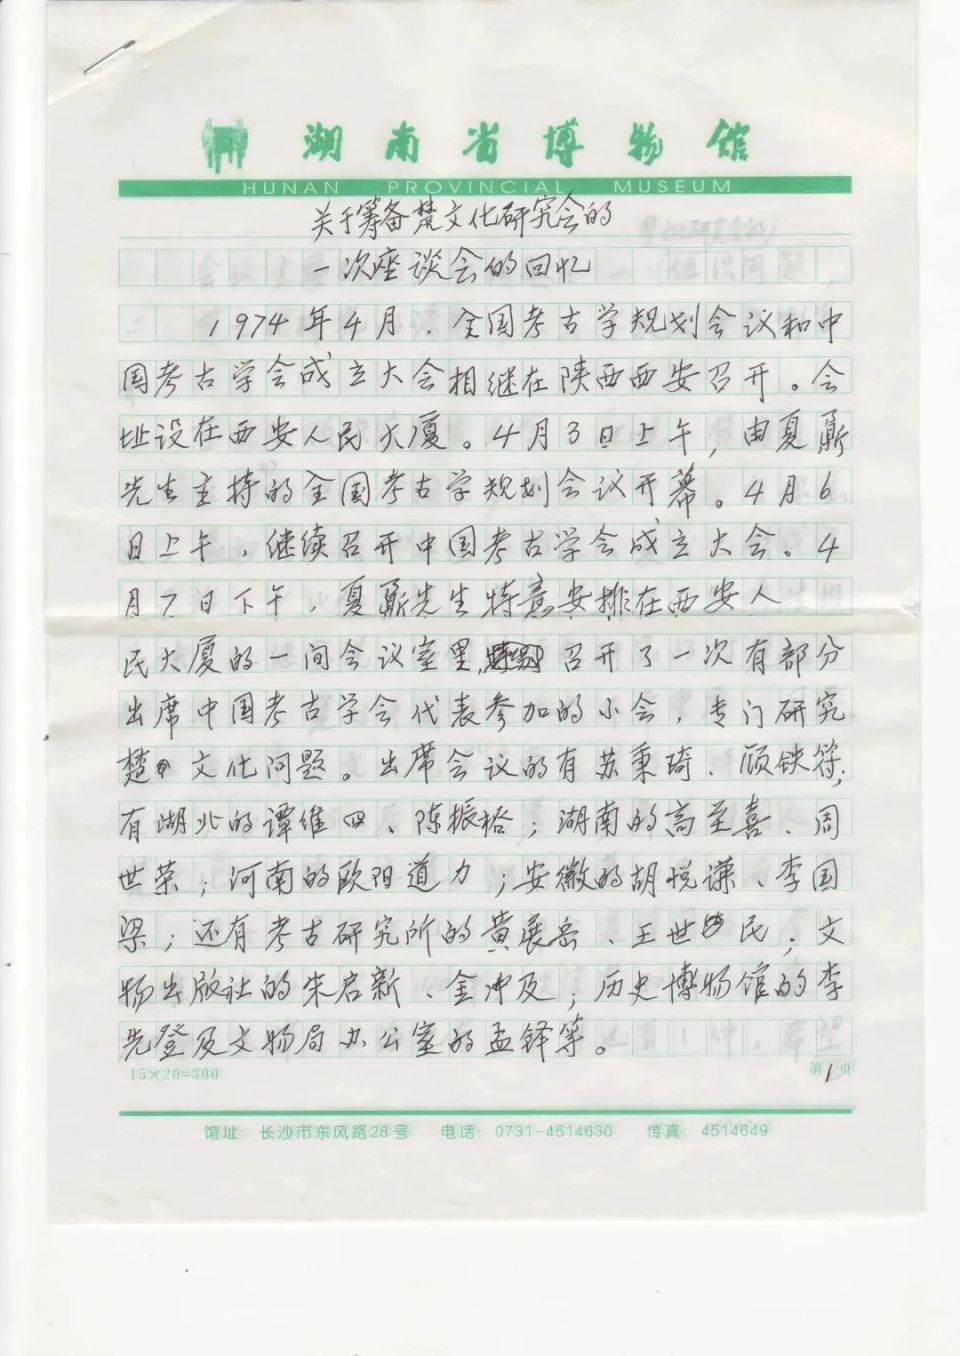 湖南省博物馆
HUNAN PROVINCIAL MUSEUM
关于筹备楚文化研究会的
一次座谈会的回忆
1974年4月，全国考古学规划会议和中
国考古学会成立大会相继在陕西西安召开。会
址设在西安人民大厦。4月3日上午，由夏鼐
先生主持的全国考古学规划会议开幕。4月6
日上午，继续召开中国考古学会成立大会。4
月7日下午，夏鼐先生特意安排在西安人
民大厦的一间会议室里，召开了一次有部分
出席中国考古学会代表参加的小会，专门研究
楚文化问题。出席会议的有苏秉琦、顾铁符；
有湖北的谭维四、陈振裕；湖南的高至喜、周
世荣；河南的欧阳道力；安徽的胡悦谦、李国
梁；还有考古研究所的黄展岳、王世民；文
物出版社的朱启新、金冲及；历史博物馆的李
先登及文物局办公室的孟铎等。
15×20=300
第1页
馆址：长沙市东风路28号 电话：0731-4514630 传真：4514649